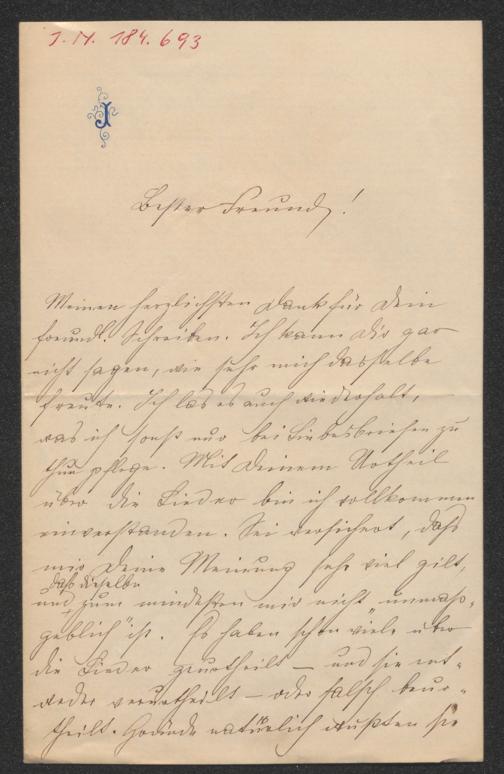 I. N. 184.693
J
Bester Freund!
Meinen herzlichsten Dank für Dein
freundl. Schreiben. Ich kann Dir gar
nicht sagen, wie sehr mich dasselbe
freute. Ich las es auch wiederholt,
was ich sonst nur bei Liebesbriefen zu
thun pflege. Mit Deinem Urtheil
über die Lieder bin ich vollkommen
einverstanden. Sei versichert, daß
mir Deine Meinung sehr viel gilt,
daß dieselbe
und zum mindesten mir nicht "unmaß-
geblich" ist. Es haben schon viele über
die Lieder geurtheilt – und sie ent-
weder verurtheilt – oder falsch beur-
theilt. Gründe natürlich wußten sie